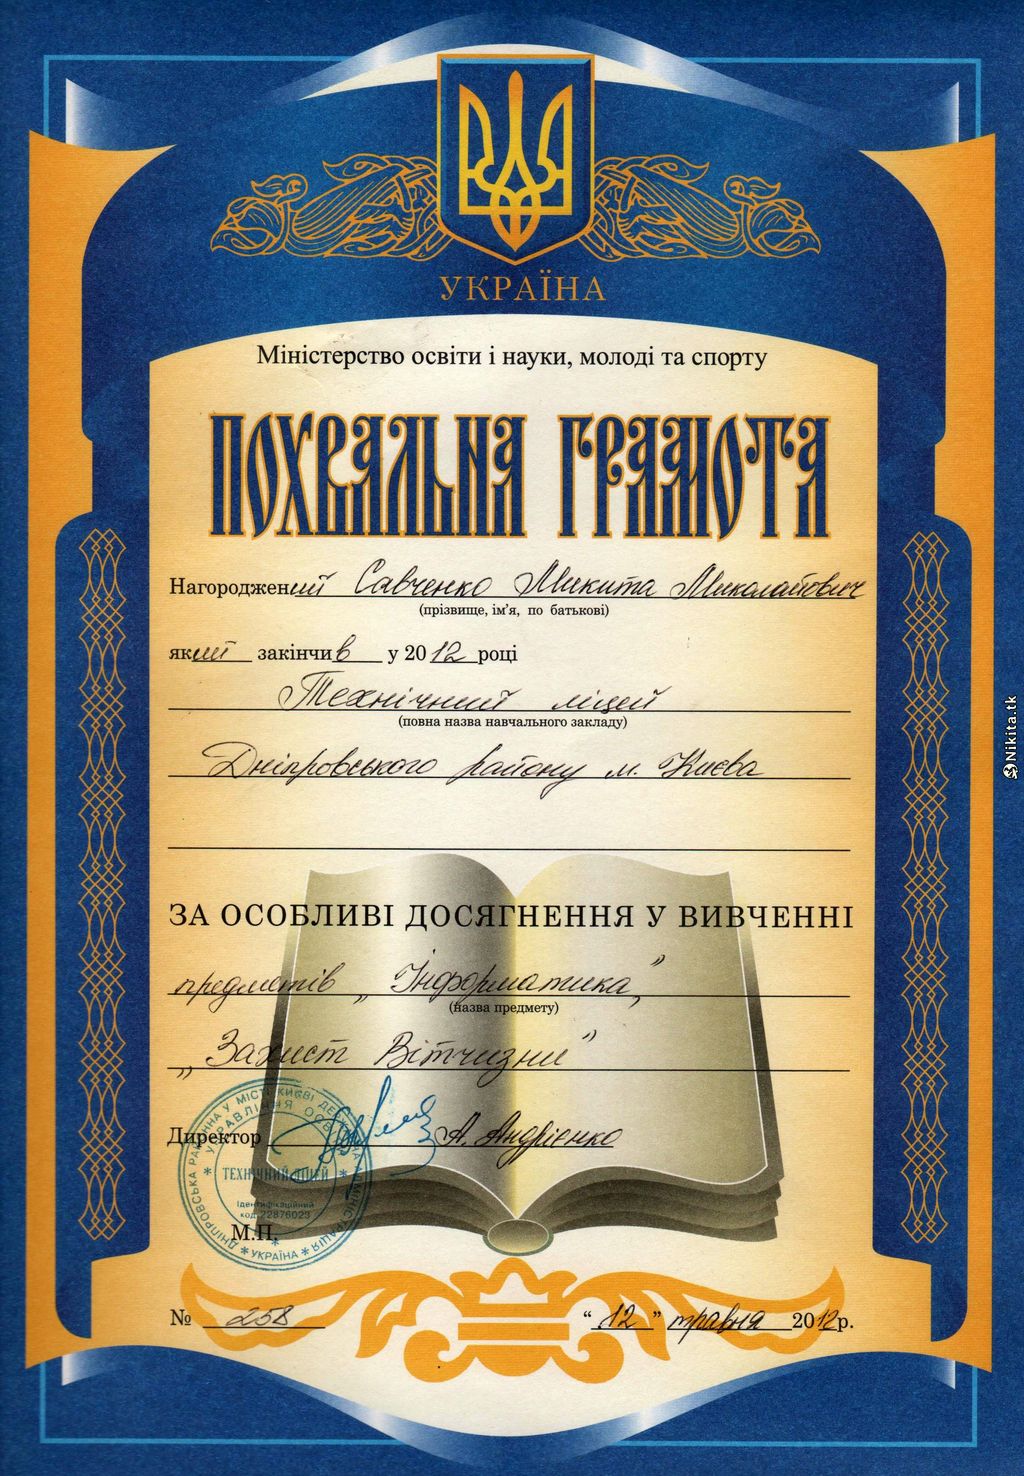 УКРАЇНА
Міністерство освіти і науки, молоді та спорту
ПОХВАЛЬНА ГРАМОТА
Нагороджений Савченко Микита Миколайович
(прізвище, ім'я, по батькові)
який закінчив у 2012 році
Технічний ліцей
(повна назва навчального закладу)
Дніпровського району м. Києва
ЗА ОСОБЛИВІ ДОСЯГНЕННЯ У ВИВЧЕННІ
предметів „Інформатика”,
(назва предмету)
„Захист Вітчизни”
Директор А. Андрієнко
ДНІПРОВСЬКА РАЙОННА У МІСТІ КИЄВІ ДЕРЖАВНА АДМІНІСТРАЦІЯ
УПРАВЛІННЯ ОСВІТИ
ТЕХНІЧНИЙ ЛІЦЕЙ
Ідентифікаційний
код 22876023
* УКРАЇНА *
М.П.
№ 258 “12” травня 2012р.
Nikita.tk